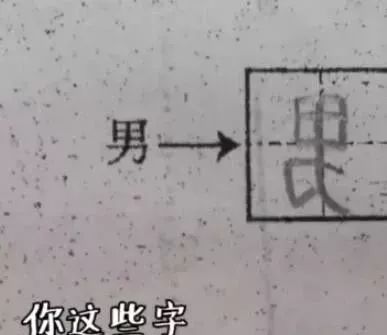 男
你这些字